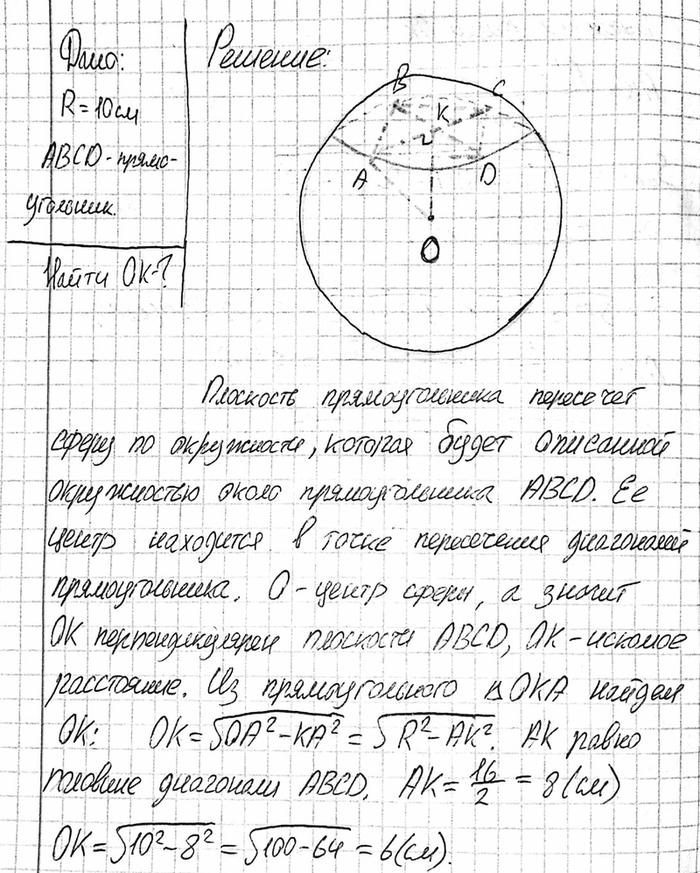 Дано:
R = 10 см
ABCD - прямо-
угольник.
Найти OK-?
Решение:
B
C
K
r
A
D
O
Плоскость прямоугольника пересечет
сферу по окружности, которая будет описанной
окружностью около прямоугольника ABCD. Ее
центр находится в точке пересечения диагоналей
прямоугольника. O - центр сферы, а значит
OK перпендикулярен плоскости ABCD, OK - искомое
расстояние. Из прямоугольного △OKA найдем
OK: OK = √OA² - KA² = √R² - AK². AK равно
половине диагонали ABCD. AK = 16/2 = 8 (см)
OK = √10² - 8² = √100 - 64 = 6 (см).